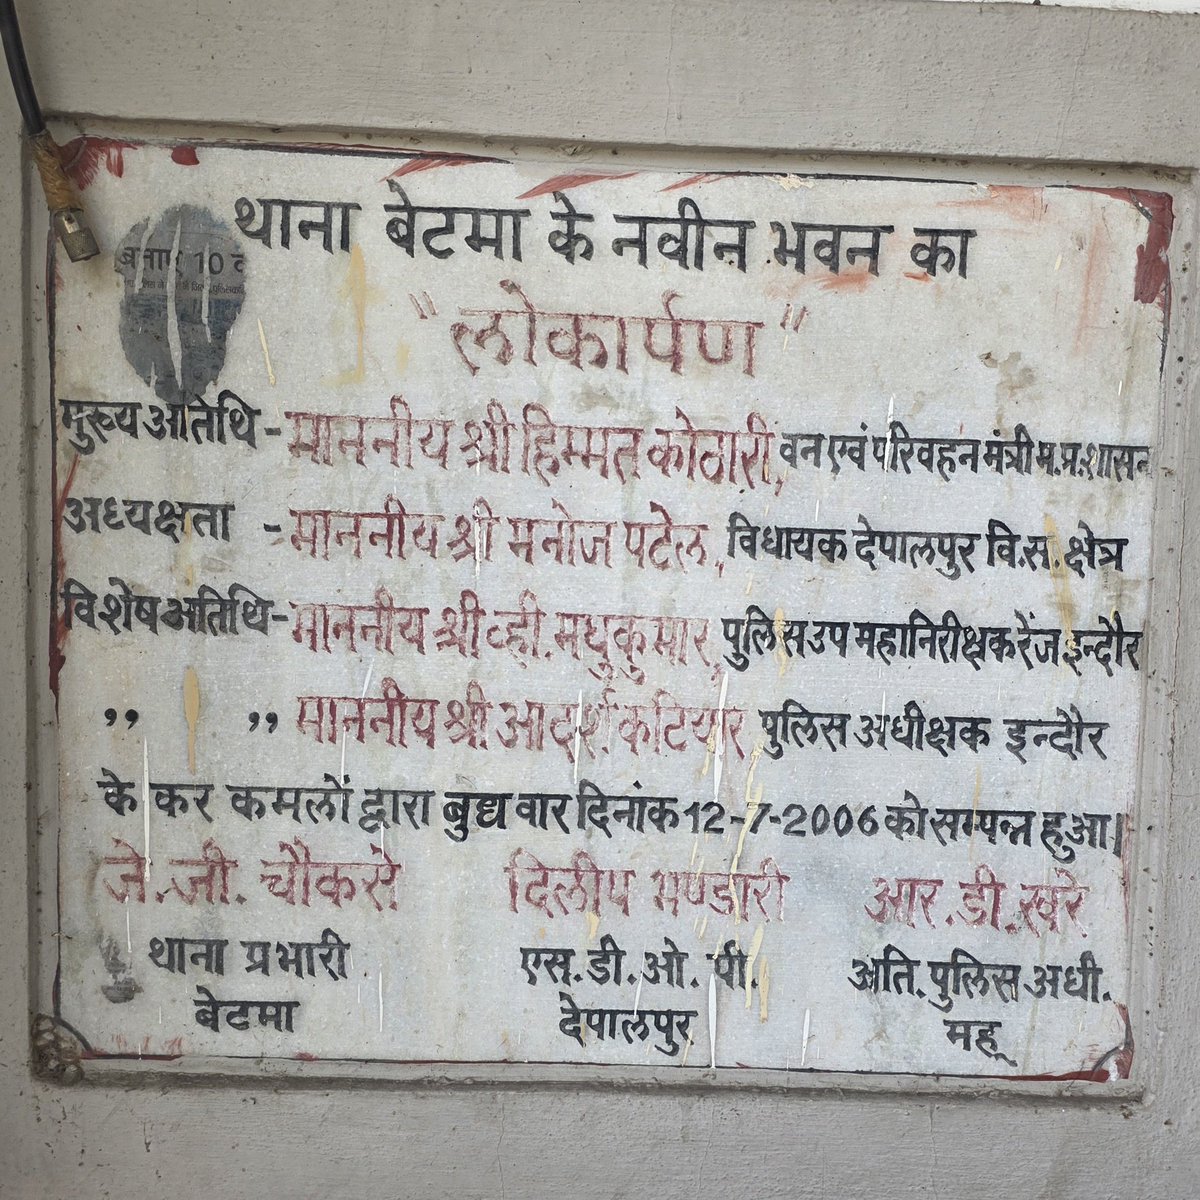 थाना बेटमा के नवीन भवन का
"लोकार्पण"
मुख्य अतिथि - माननीय श्री हिम्मत कोठारी, वन एवं परिवहन मंत्री म.प्र.शासन
अध्यक्षता - माननीय श्री मनोज पटेल, विधायक देपालपुर वि.स. क्षेत्र
विशेष अतिथि - माननीय श्री व्ही. मधुकुमार, पुलिस उप महानिरीक्षक रेंज इन्दौर
,, ,, माननीय श्री आदर्श कटियार पुलिस अधीक्षक इन्दौर
के कर कमलों द्वारा बुधवार दिनांक 12-7-2006 को सम्पन्न हुआ।
जे.जी. चौकसे दिलीप भण्डारी आर.डी.खरे
थाना प्रभारी एस.डी.ओ.पी. अति.पुलिस अधी.
बेटमा देपालपुर महू
10